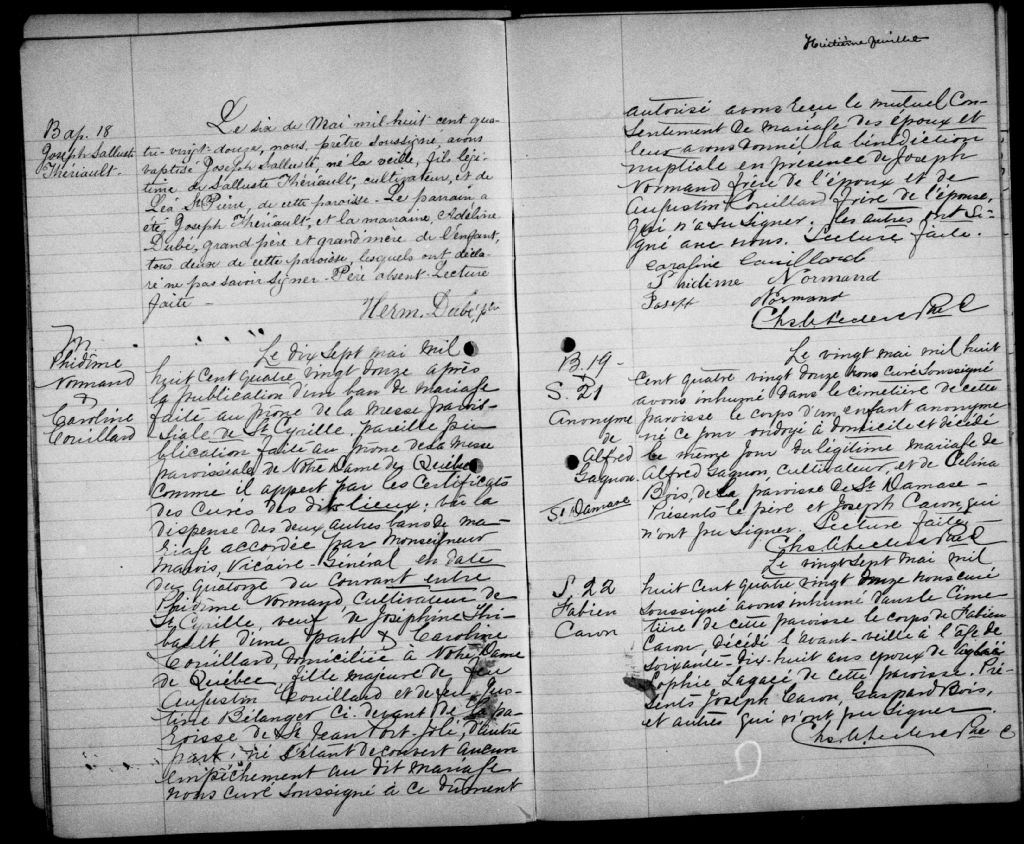 Bap. 18
Joseph Salluste
Thériault.
Le six de Mai mil huit cent qua-
tre-vingt-douze, nous, prêtre soussigné, avons
baptisé Joseph Salluste, né la veille, fils légi-
time de Salluste Thériault, cultivateur, et de
Léa St Pierre, de cette paroisse. Le parrain a
été Joseph Thériault, et la marraine, Adéline
Dubé, grand père et grand'mère de l'enfant,
tous deux de cette paroisse, lesquels ont décla-
ré ne pas savoir signer. Père absent. Lecture
faite
Herm. Dubé, ptre
M.
Phidime
Normand
&
Caroline
Couillard
Le dix sept mai mil
huit cent quatre vingt douze après
la publication d'un ban de mariage
faite au prone de la messe parois-
siale de St Cyrille, pareille pu-
blication faite au prône de la messe
paroissiale de Notre Dame de Québec
comme il appert par les certificats
des curés des dits lieux; vu la
dispense des deux autres bans de ma-
riage accordée par Monseigneur
Marois, Vicaire-Général en date
du quatorze du courant entre
Phidime Normand, cultivateur de
St Cyrille, veuf de Josephine Thi-
bault d'une part & Caroline
Couillard, domiciliée à Notre Dame
de Québec, fille majeure de feu
Augustin Couillard et de feu Jus-
tine Bélanger ci-devant de la pa-
roisse de St Jean Port-Joli, d'autre
part; ne s'étant découvert aucun
empêchement au dit mariage
nous curé soussigné à ce dûment
Huitième feuillet
autorisé avons reçu le mutuel con-
sentement de mariage des époux et
leur avons donné la bénédiction
nuptiale en présence de Joseph
Normand frère de l'époux et de
Augustin Couillard frère de l'épouse,
qui n'a su signer. les autres ont si-
gné avec nous. Lecture faite.
Carafine Couillard
Phidime Normand
Joseph Normand
B. 19
S. 21
Anonyme
de
Alfred
Gagnon.
St Damase
Le vingt mai mil huit
cent quatre vingt douze nous curé soussigné
avons inhumé dans le cimetière de cette
paroisse le corps d'un enfant anonyme
né ce jour ondoyé à domicile et décédé
le même jour du légitime mariage de
Alfred Gagnon, cultivateur, et de Célina
Bois, de la paroisse de St Damase-
Présents le père et Joseph Caron, qui
n'ont pu signer. Lecture faite
S. 22
Fabien
Caron
Le vingt sept mai mil
huit cent quatre vingt douze nous curé
soussigné avons inhumé dans le cime-
tière de cette paroisse le corps de Fabien
Caron, décédé l'avant-veille à l'âge de
soixante-dix-huit ans époux de
Sophie Lagacé de cette paroisse. Pré-
sents Joseph Caron, Gaspard Bois,
et autres qui n'ont pu signer.